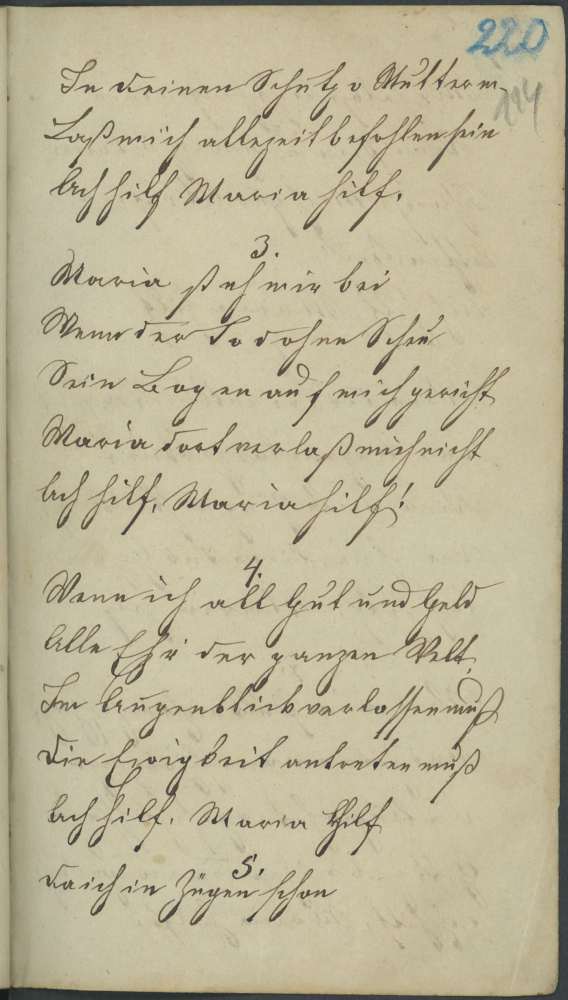 220
114
In deinen Schutz o Mutter m
Laß mich allezeit befohlen sein
Ach hilf Maria hilf.
3.
Maria steh mir bei
Wenn der Tod ohne Scheu
Sein Bogen auf mich gericht
Maria dort verlaß mich nicht
Ach hilf, Maria hilf!
4.
Wenn ich all Gut und Geld
Alle Ehr der ganzen Welt
Im Augenblick verlassen muß
Die Ewigkeit antreten muß
Ach hilf. Maria Hilf
5.
Da ich in Zügen schon